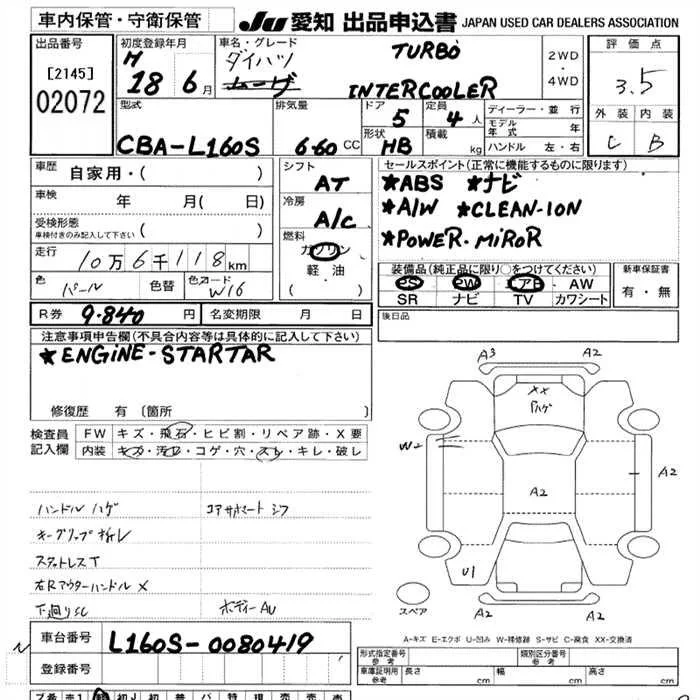 車内保管・守衛保管
JU 愛知 出品申込書 JAPAN USED CAR DEALERS ASSOCIATION
出品番号
[2145]
02072
初度登録年月
H
18 6月
車名・グレード
ダイハツ
ムーヴ
TURBO
INTERCOOLER
2WD
・
4WD
評価点
3.5
外装 内装
C B
型式
CBA-L160S
排気量
6・60 CC
ドア
5
定員
4人
形状
HB
積載
kg
ディーラー・並行
モデル年式 年
ハンドル 左・右
車歴
自家用・( )
車検
年 月( 日)
受検形態
車検付きのみ記入して下さい ( )
走行
10万6千118km
色
パール
色替
色コード
W16
シフト
AT
冷房
A/C
燃料
ガソリン
軽油
( ・ )
セールスポイント(正常に機能するものに限ります)
★ABS ★ナビ
★A/W ★CLEAN-ION
★POWER・MiROR
装備品(純正品に限り○をつけてください)
PS PW エアB AW
SR ナビ TV カワシート
新車保証書
有・無
R券 9.840 円
名変期限 月 日
後日品
注意事項申告欄(不具合内容等は具体的に記入して下さい)
★ENGiNE-STARTAR
修復歴 有 〔箇所 〕
検査員
記入欄
FW キズ・飛石・ヒビ割・リペア跡・X要
内装 キズ・汚レ・コゲ・穴・スレ・キレ・破レ
ハンドルハゲ
コアサポートシフ
キーグリップ折レ
スタットレスT
右Rアウターハンドル X
下廻りSC
ボディーAU
A3 A2
XX
ハゲ
W2
A2
A2
U1
A2
A2
スペア
A-キズ E-エクボ U-凹み W-補修跡 S-サビ C-腐食 XX-交換済
車台番号 L160S-0080419
登録番号
形式指定番号
参考
類別区分番号
参考
車庫証明用
参考
長さ cm 幅 cm 高さ cm